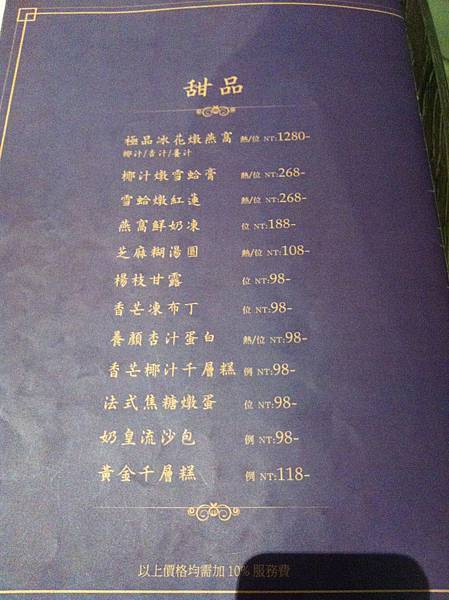 甜品
極品冰花燉燕窩 熱/位 NT:1280-
椰汁/杏汁/薑汁
椰汁燉雪蛤膏 熱/位 NT:268-
雪蛤燉紅蓮 熱/位 NT:268-
燕窩鮮奶凍 位 NT:188-
芝麻糊湯圓 熱/位 NT:108-
楊枝甘露 位 NT:98-
香芒凍布丁 位 NT:98-
養顏杏汁蛋白 熱/位 NT:98-
香芒椰汁千層糕 例 NT:98-
法式焦糖燉蛋 位 NT:98-
奶皇流沙包 例 NT:98-
黃金千層糕 例 NT:118-
以上價格均需加 10% 服務費